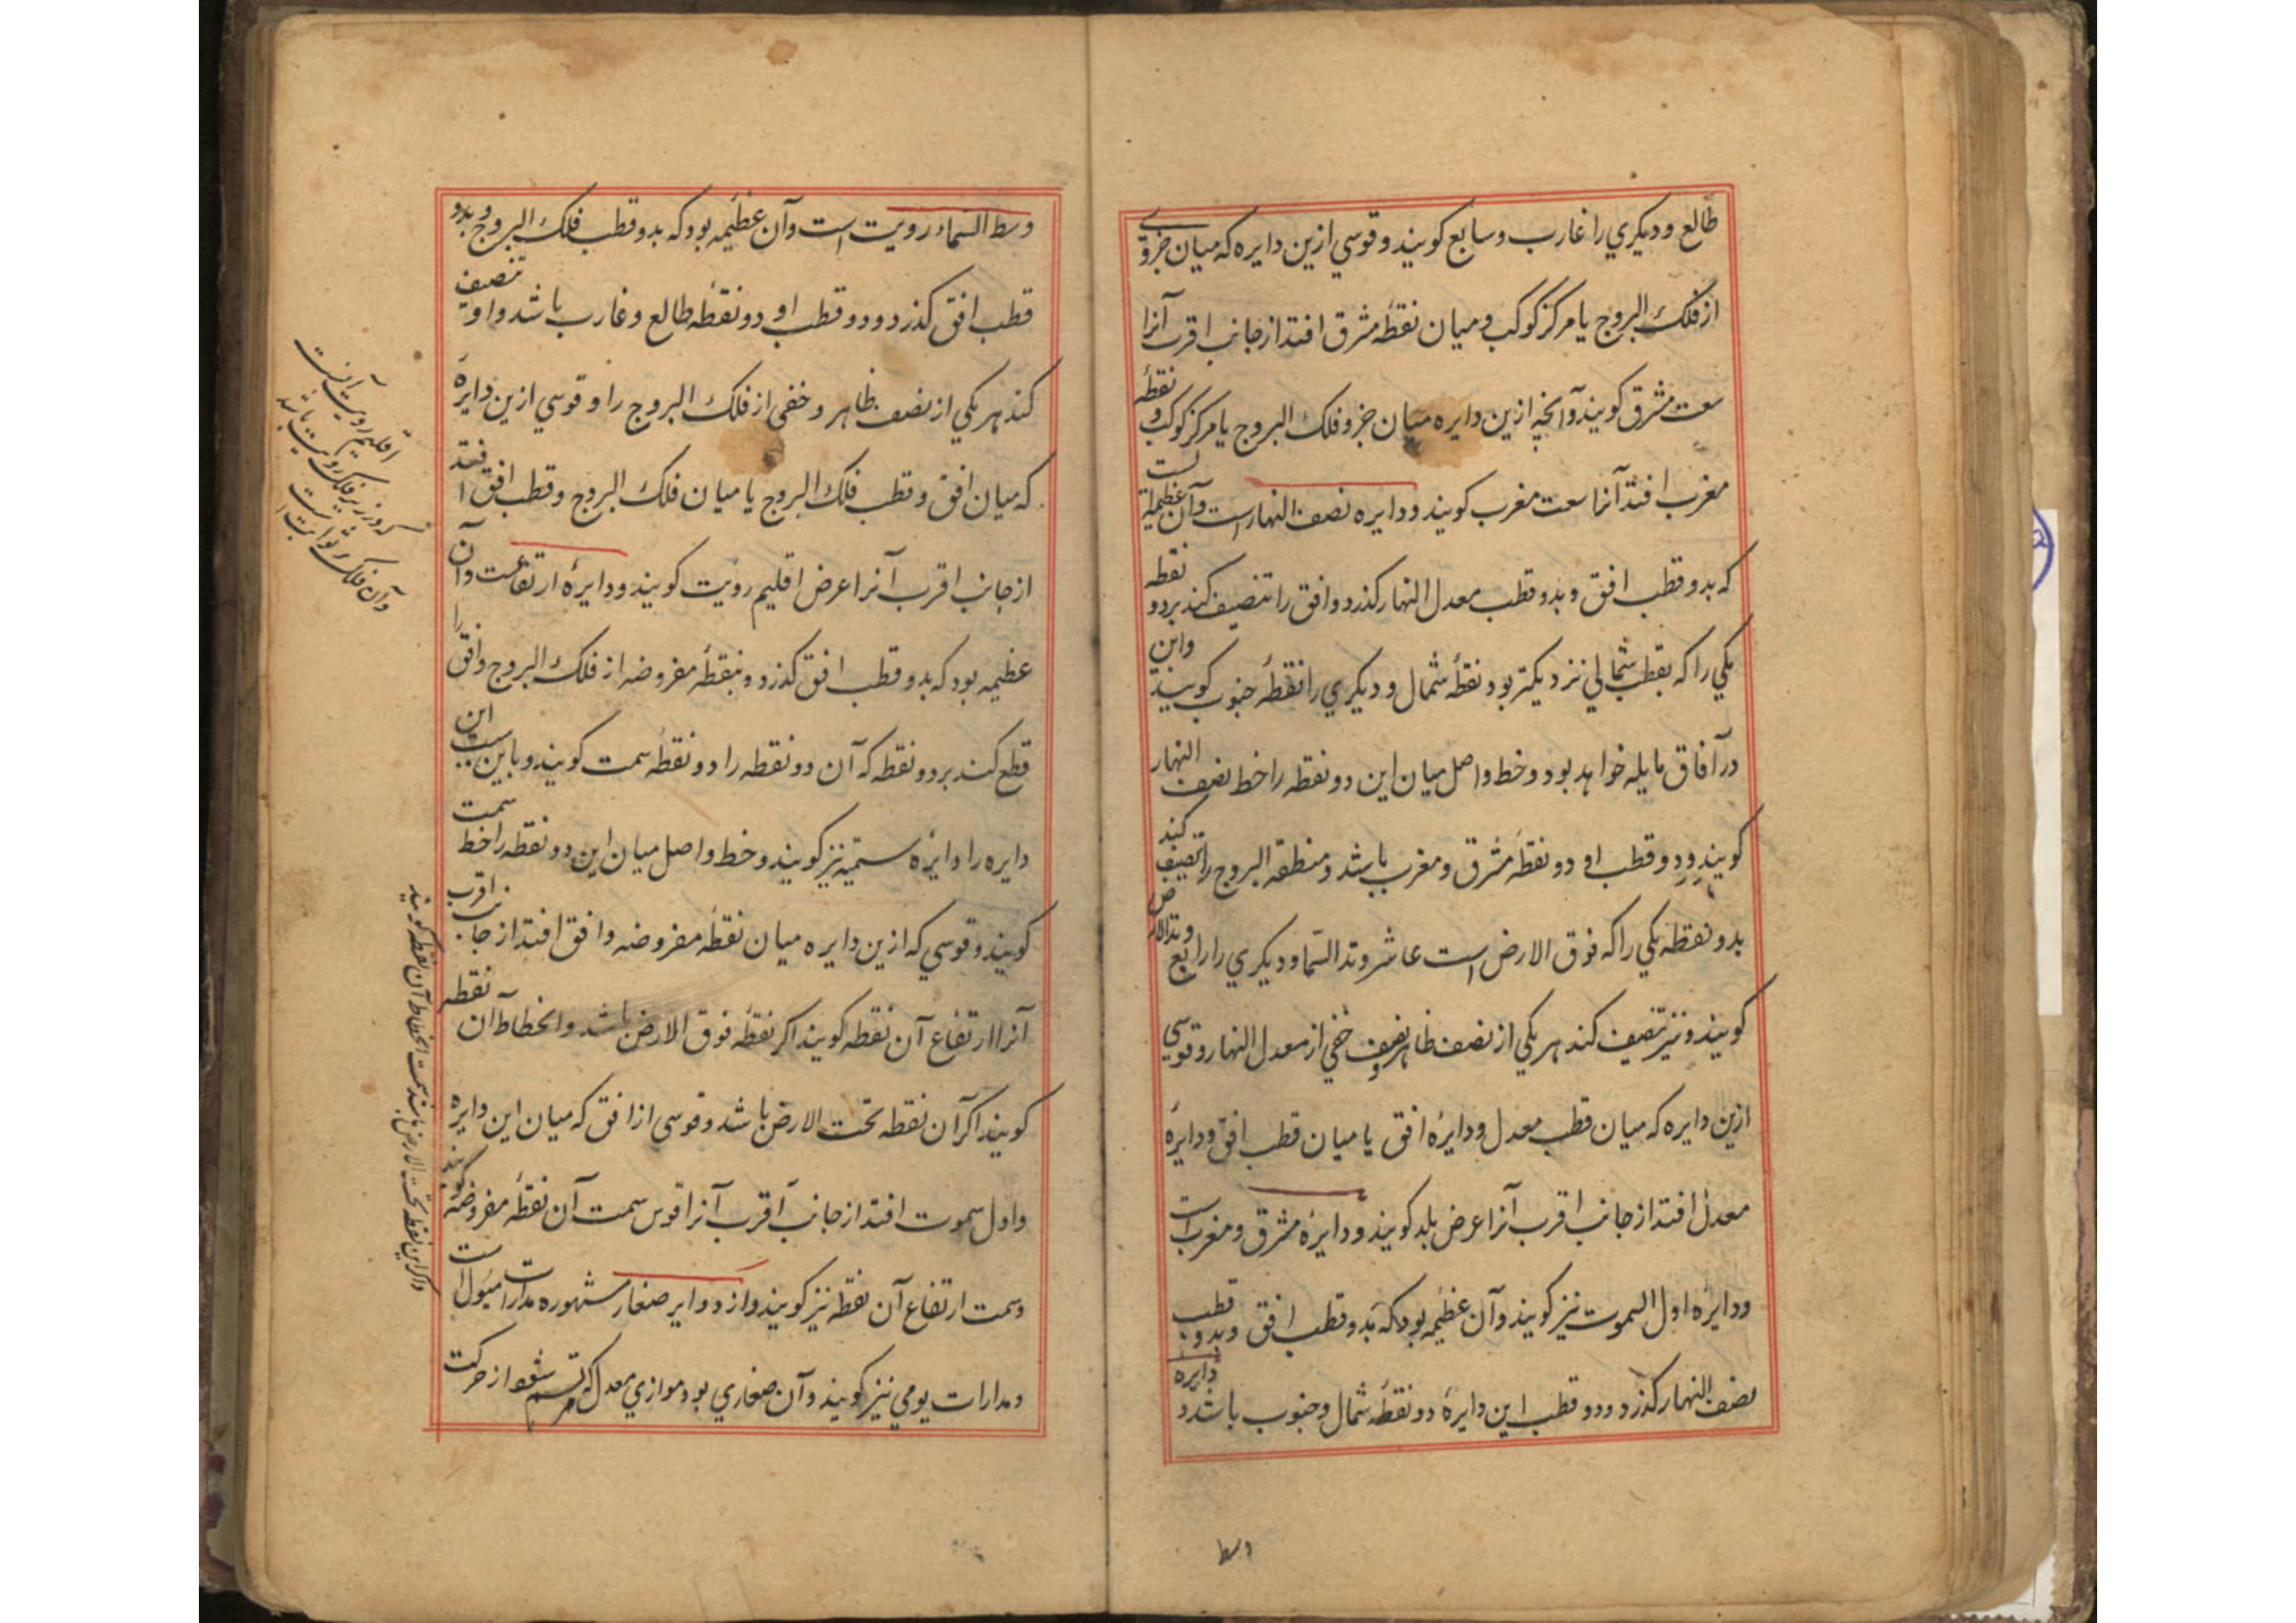 طالع و دیکري را غارب و سابع کویند و قوسي ازین دایره که میان جزوي
از فلک البروج یا مرکز کوکب و میان نقطهٔ مشرق افتد از جانب اقرب آنرا
سعت مشرق کویند و آنچه ازین دایره میان جزو فلک البروج یا مرکز کوکب و نقطهٔ
مغرب افتد آنرا سعت مغرب کویند و دایره نصف النهار است و آن عظیمهٔ است
که بدو قطب افق و بدو قطب معدل النهار کذرد و افق را تنصیف کند بر دو نقطه
یکي را که بقطب شمالي نزدیکتر بود نقطهٔ شمال و دیکري را نقطهٔ جنوب کویند و این
در آفاق مایله خواهد بود و خط واصل میان این دو نقطه را خط نصف النهار
کویند و دو قطب او دو نقطهٔ مشرق و مغرب باشد و منطقة البروج را تنصیف کند
بدو نقطه یکي را که فوق الارض است عاشر و وتد السّما و دیکري را رابع و وتد الارض
کویند و نیز تنصیف کند هر یکي از نصف ظاهر و نصف خفي از معدل النهار و قوسي
ازین دایره که میان قطب معدل و دایرهٔ افق یا میان قطب افق و دایرهٔ
معدل افتد از جانب اقرب آنرا عرض بلد کویند و دایرهٔ مشرق و مغرب است
و دایرهٔ اول السموت نیز کویند و آن عظیمه بود که بدو قطب افق و بدو قطب
نصف النهار کذرد و دو قطب این دایرهٔ دو نقطهٔ شمال و جنوب باشد و دایره
وسط
وسط السماء رویت است و آن عظیمه بود که بدو قطب فلک البروج و بدو
قطب افق کذرد و دو قطب او دو نقطهٔ طالع و غارب باشد و او تنصیف
کند هر یکي از نصف ظاهر و خفي از فلک البروج را و قوسي ازین دایرهٔ
که میان افق و قطب فلک البروج یا میان فلک البروج و قطب افق افتد
از جانب اقرب آنرا عرض اقلیم رویت کویند و دایرهٔ ارتفاعست و آن
عظیمه بود که بدو قطب افق کذرد و بنقطهٔ مفروضه از فلک البروج و افق را
قطع کند بر دو نقطه که آن دو نقطه را دو نقطهٔ سمت کویند و باین سبب این
دایره را دایرهٔ سمتیه نیز کویند و خط واصل میان این دو نقطه را خط سمت
کویند و قوسي که ازین دایره میان نقطهٔ مفروضه و افق افتد از جانب اقرب
آنرا ارتفاع آن نقطه کویند اکر نقطه فوق الارض باشد و انحطاط آن نقطه
کویند اکر آن نقطه تحت الارض باشد و قوسي از افق که میان این دایره
و اول سموت افتد از جانب اقرب آنرا قوس سمت آن نقطهٔ مفروضه کویند
و سمت ارتفاع آن نقطه نیز کویند و از دوایر صغار مشهوره مدارات میول است
و مدارات یومي نیز کویند و آن صغاري بود موازي معدل که مرتسم شود از حرکت
اقلیم رویت آنست
که در زیر فلک رویت باشد
و آن فلک ثوابت است
و اکر این نقطه تحت الارض باشد سمت انحطاط آن نقطه کویند